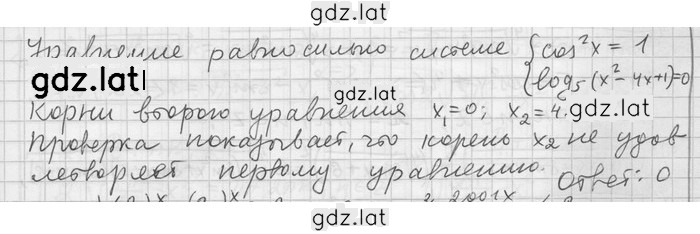 gdz.lat
Уравнение равносильно системе { cos²x = 1
log₅(x²-4x+1)=0
gdz.lat
gdz.lat
Корни второго уравнения x₁=0; x₂=4.
gdz.lat
Проверка показывает, что корень x₂ не удов
летворяет первому уравнению.
Ответ: 0
gdz.lat